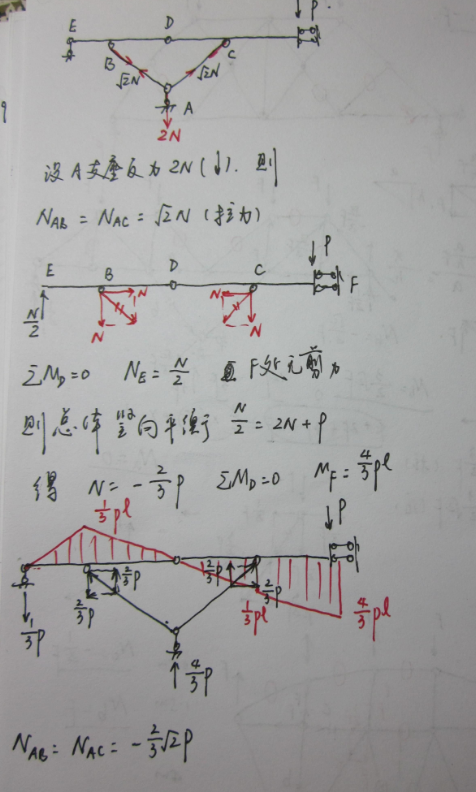 P
E
D
B
C
√2N
√2N
A
2N
设A支座反力为2N(↓). 则
N_AB = N_AC = √2N (拉力)
P
E B D C F
N N
N/2 N N
ΣM_D=0 N_E = N/2 且 F处无剪力
则总体竖向平衡 N/2 = 2N + P
得 N = -2/3 P ΣM_D=0 M_F = 4/3 Pl
1/3 Pl
P
2/3 P
2/3 P
2/3 P
2/3 P
1/3 P
1/3 Pl
4/3 Pl
4/3 P
N_AB = N_AC = -2/3 √2 P